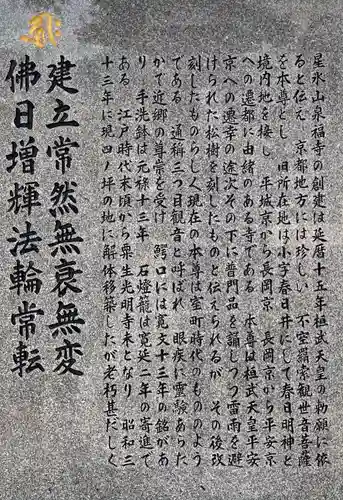 星氷山泉福寺の創建は延暦十五年桓武天皇の勅願に依
ると伝え 京都地方には珍しい 不空羂索観世音菩薩
を本尊とし 旧所在地は小字春日井にして春日明神と
境内地を接し 平城京から長岡京 長岡京から平安京
への遷都に由緒のある寺である 本尊は桓武天皇平安
京への遷幸の途次その下に普門品を誦しつつ雷雨を避
けられた松樹を刻したものと伝えられるが その後改
刻したものらしく現在の本尊は室町時代のもののよう
である 通称三つ目観音と呼ばれ 眼疾に霊験あらた
かで近郷の尊崇を受け 鰐口には寛文十三年の銘があ
り 手洗鉢は元禄十三年 石燈籠は寛延二年の寄進で
ある 江戸時代末頃から粟生光明寺末となり 昭和三
十三年に現四ノ坪の地に解体移築したが老朽甚だしく
建立常然無衰無変
佛日増輝法輪常転